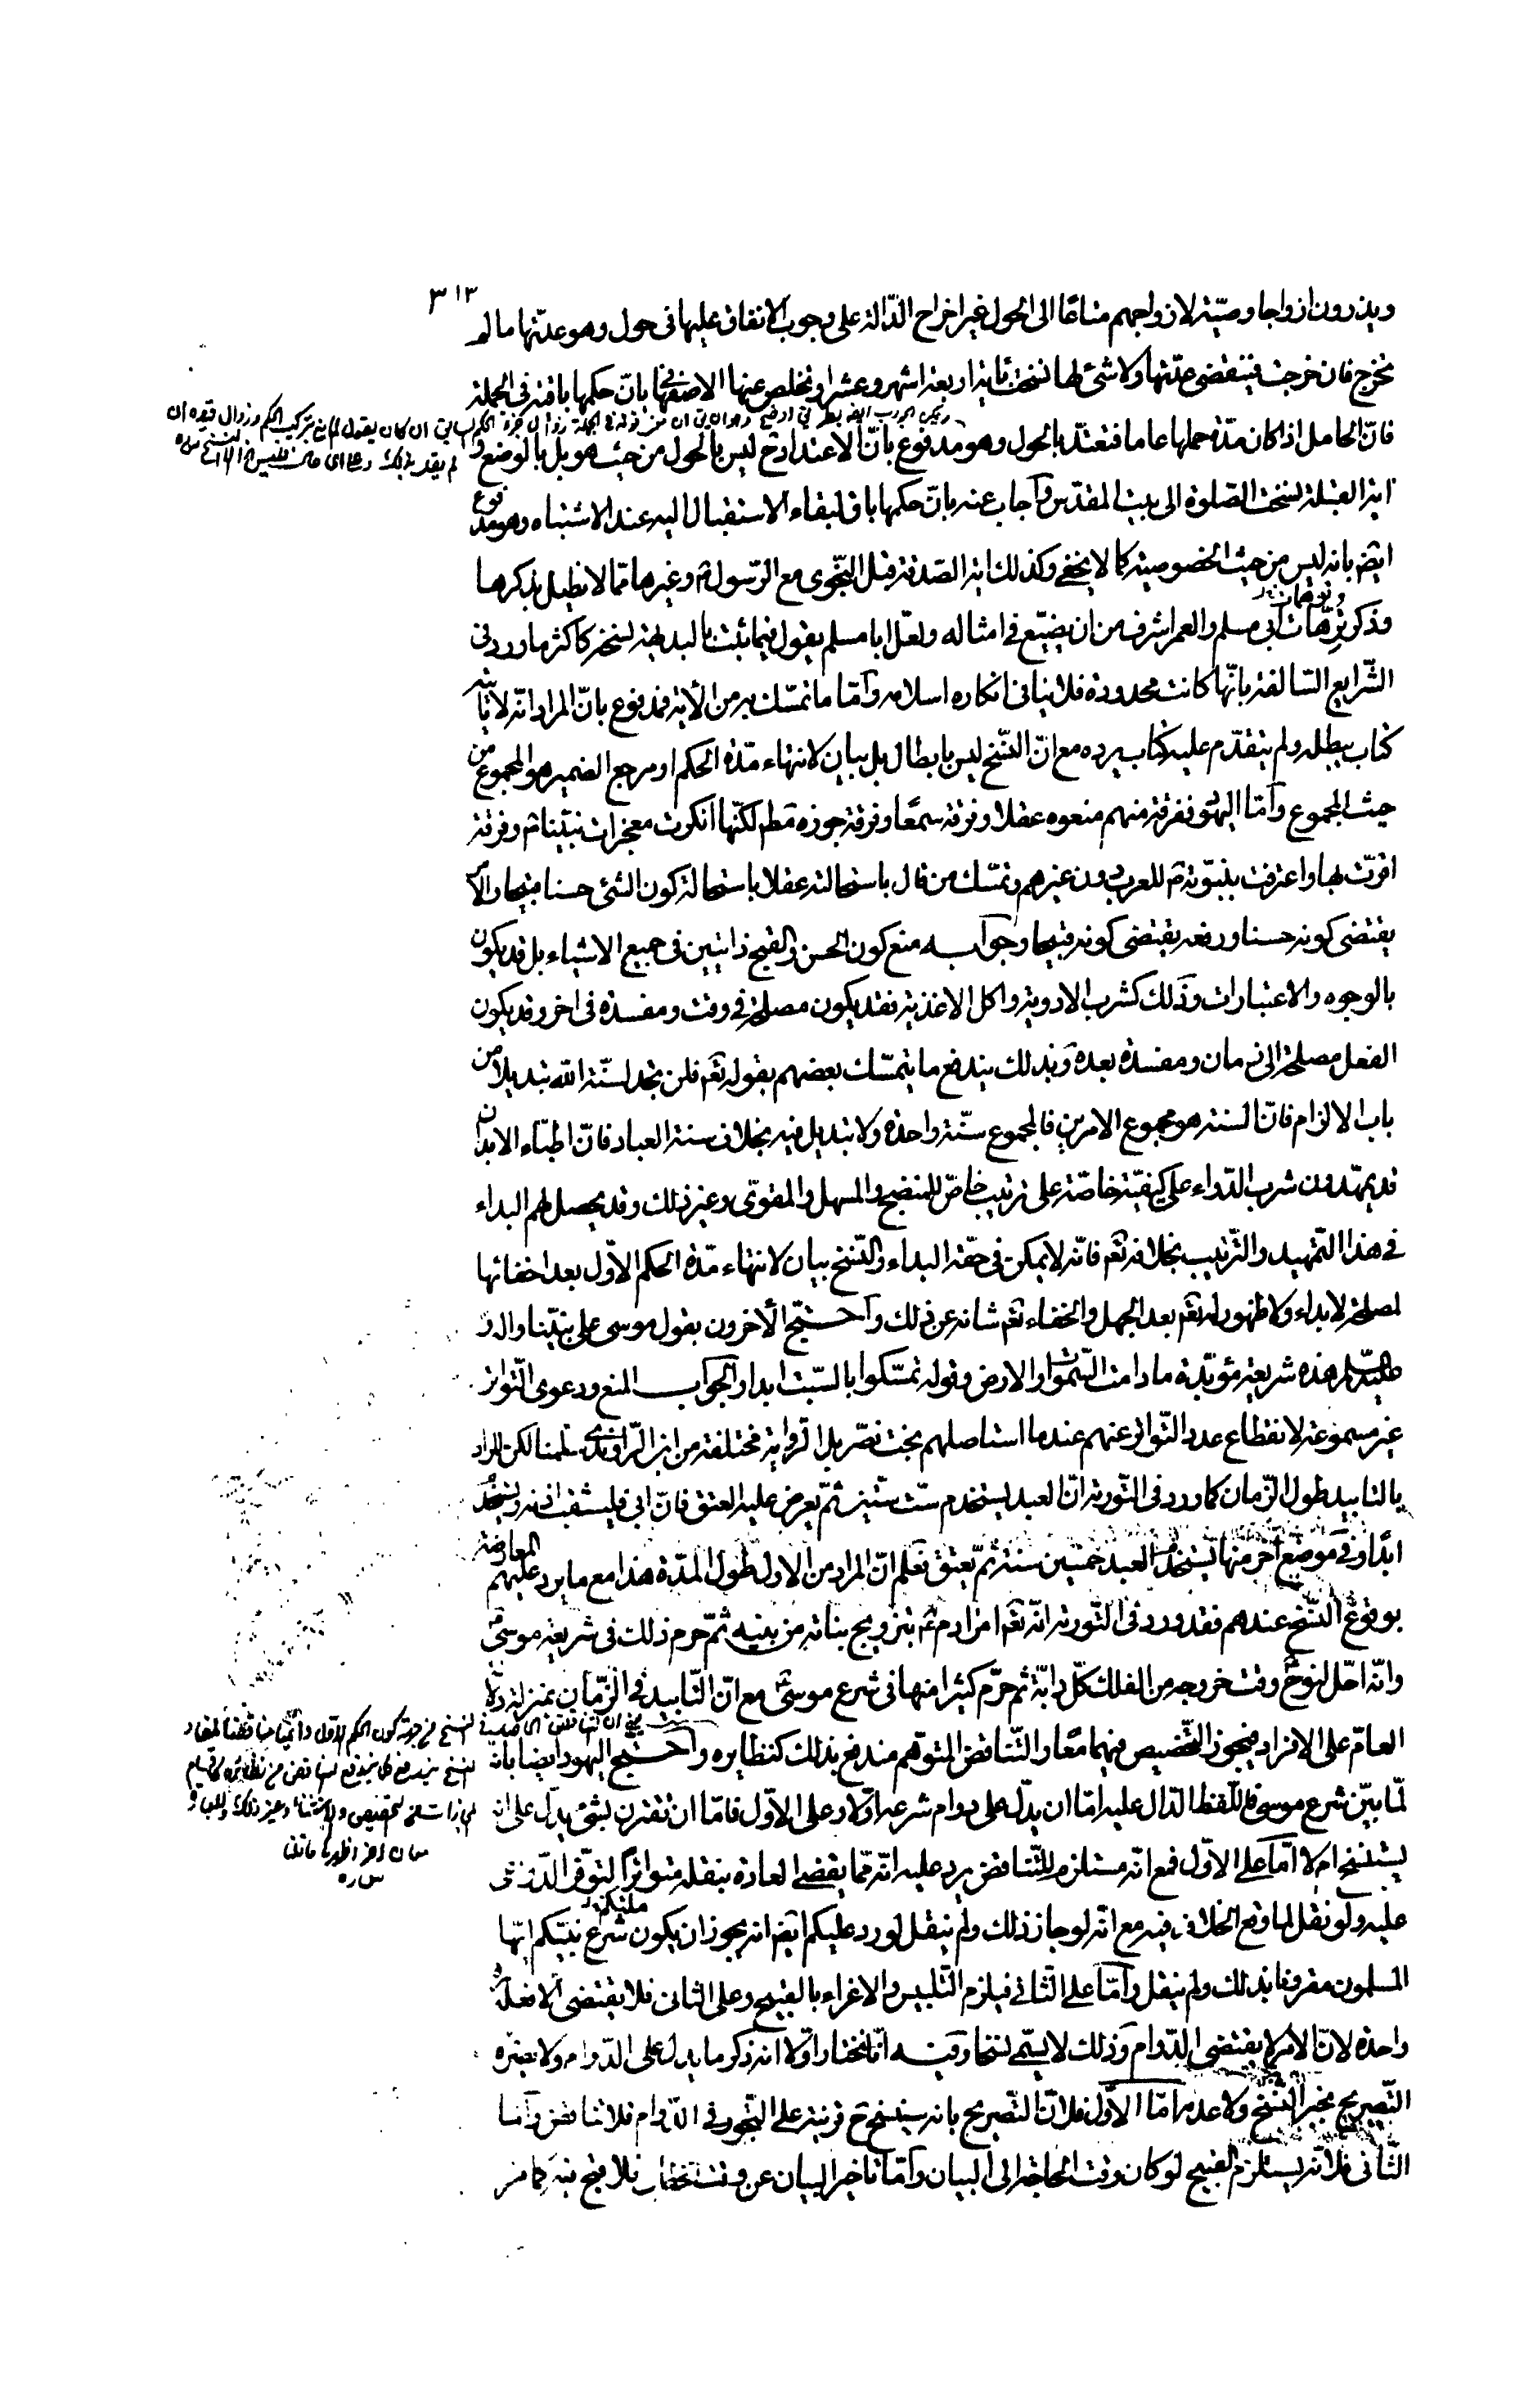 ٣١٣
ويذرون ازواجا وصيّة لازواجهم متاعًا الى الحول غير اخراج الدّالة على وجوب الانفاق عليها فى حول وهو عدتها ما لم
تخرج فان خرجت فينقضى عدّتها ولا شئ لها نسخت بآية اربعة اشهر وعشرا وتخلص عنها الاصفهانى بانّ حكمها باقية فى الجملة
فانّ الحامل اذا كان مدّة حملها عاما فتعتدّ بالحول وهو مدفوع بانّ الاعتداد ح ليس بالحول من حيث هو بل بالوضع و
اية القبلة نسخت الصّلوة الى بيت المقدّس وآجاب عنه بانّ حكمها باق لبقاء الاستقبال اليه عند الاشتباه وهو مدفوع
ايضا بانه ليس من حيث الخصوصية كما لا يخفى وكذلك اية الصّدقة قبل النّجوى مع الرّسول ص وغيرها ممّا لا نطيل بذكرها
وذكر ترّهات ابى مسلم والعمر اشرف من ان يضيّع فى امثاله ولعلّ ابا مسلم يقول فيما يثبت بالبديهة نسخه كاكثر ما ورد فى
الشّرايع السّالفة بانّها كانت محدودة فلا ينافى انكاره اسلامه وآمّا ما تمسّك به من الآية فمدفوع بانّ المراد انّه لا ياتيه
كتاب يبطله ولم يتقدّم عليه كتاب يرده مع انّ النّسخ ليس بابطال بل بيان لانتهاء مدّة الحكم او مرجع الضمير هو المجموع من
حيث المجموع وآمّا اليهود ففرقة منهم منعوه عقلا وفرقة سمعًا وفرقة جوزه مطلقا لكنّها انكرت معجزات نبيّنا ص وفرقة
اقرّت بها واعترفت بنبوّته ص للعرب دون غيرهم وتمسّك من قال باستحالته عقلا باستحالة كون الشئ حسنا قبيحا والامر
يقتضى كونه حسنا ورفعه يقتضى كونه قبيحا وجوابه منع كون الحسن والقبح ذاتيين فى جميع الاشياء بل قد يكون
بالوجوه والاعتبارات وذلك كشرب الادوية واكل الاغذية فقد يكون مصلحة فى وقت ومفسدة فى اخر وقد يكون
الفعل مصلحة الى زمان ومفسدة بعده وبذلك يندفع ما يتمسّك بعضهم بقوله تعم فلن تجد لسنّة الله تبديلا من
باب الالزام فانّ السنة هو مجموع الامرين فالمجموع سنّة واحدة ولا تبديل فيه بخلاف سنة العباد فانّ اطبّاء الابدان
قد يمهّدون شرب الدّواء على كيفيّة خاصّة على ترتيب خاصّ للمنضج والمسهل والمقوّى وغير ذلك وقد يحصل لهم البداء
فى هذا التّمهيد والتّرتيب بخلافه تعم فانّه لا يمكن فى حقّه البداء والنّسخ بيان لانتهاء مدّة الحكم الاوّل بعد اخفائها
لمصلحة لا بداء ولا ظهور له تعم بعد الجهل والخفاء تعم شانه عن ذلك وآحتجّ الآخرون بقول موسى على نبيّنا واله و
عليه السّلم هذه شريعة مؤبّدة ما دامت السّموات والارض وقوله تمسّكوا بالسّبت ابدا والجواب المنع ودعوى التّواتر
غير مسموعة لانقطاع عدد التّواتر عنهم عند ما استاصلهم بخت نصّر بل الرّواية مختلقة من ابن الرّاوندى سلّمنا لكن المراد
بالتابيد طول الزّمان كما ورد فى التّورية انّ العبد يستخدم ستّ سنين ثمّ يعرض عليه العتق فان ابى فليثقب اذنه ويستخدم
ابدًا وفى موضع آخر منها يستخدم العبد خمسين سنة ثمّ يعتق فعلم انّ المراد من الاول طول المدّة هذا مع ما يرد عليهم المعارضة
بوقوع النّسخ عندهم فقد ورد فى التّورية انّه تعم امر ادم ع بتزويج بناته من بنيه ثمّ حرم ذلك فى شريعة موسى ع
وانّه احّل لنوح ع وقت خروجه من الفلك كلّ دابّة ثم حرّم كثيرا منها فى شرع موسى ع مع انّ التّابيد فى الزّمان بمنزلة دلالة
العامّ على الافراد فيجوز التّخصيص فيهما معًا والتّناقض المتوهّم مندفع بذلك كنظايره وآحتجّ اليهود ايضا بانّه
لمّا بيّن شرع موسى ع فاللّفظ الدّال عليه امّا ان يدّل على دوام شرعه او لا وعلى الاوّل فامّا ان تقترن بشئ يدلّ على انه
يستنسخ ام لا آمّا على الاوّل فمع انّه مستلزم للتّناقض يرد عليه انّه ممّا يقضى العادة بنقله متواترًا لتوفّر الدّواعى
عليه ولو نقل لما وقع الخلاف فيه مع انّه لو جاز ذلك ولم ينقل لورد عليكم ايضا انه يجوز ان يكون شرع نبيّكم ايّها
المسلمون مقرونا بذلك ولم ينقل وآمّا على الثّانى فيلزم التّلبيس والاغراء بالقبيح وعلى الثانى فلا يقتضى الّا فعله مرة
واحدة لانّ الامر لا يقتضى الدّوام وذلك لا يسمّى نسخا وفيه انّا نختار اوّلا انه ذكر ما يدل على الدّوام ولا يضرّه
التّصريح بمجئ النّسخ ولا عدمه امّا الاوّل فلانّ التّصريح بانه سينسخ ح قرينة على التّجوّز فى الدّوام فلا تناقض وآمّا
الثّانى فلانّه يستلزم القبيح لو كان وقت الحاجة الى البيان وآمّا تاخير البيان عن وقت الخطاب فلا قبح فيه كما مر